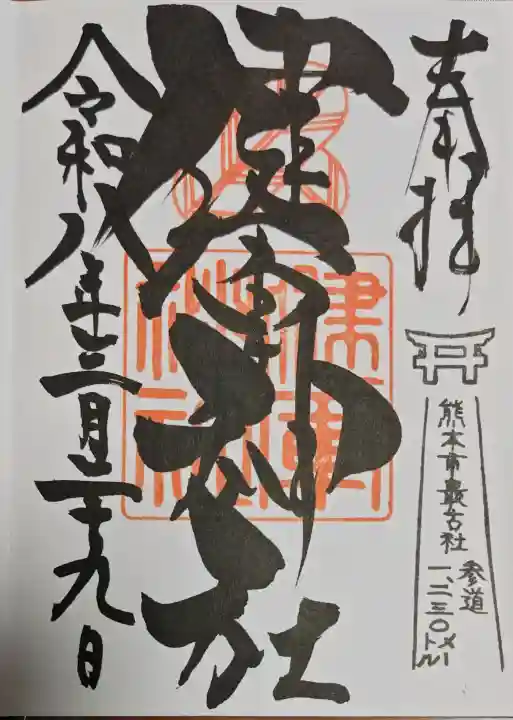 奉拝
熊本市最古社
参道
一、二三〇メートル
健軍神社
令和八年三月二十九日
健軍
神社